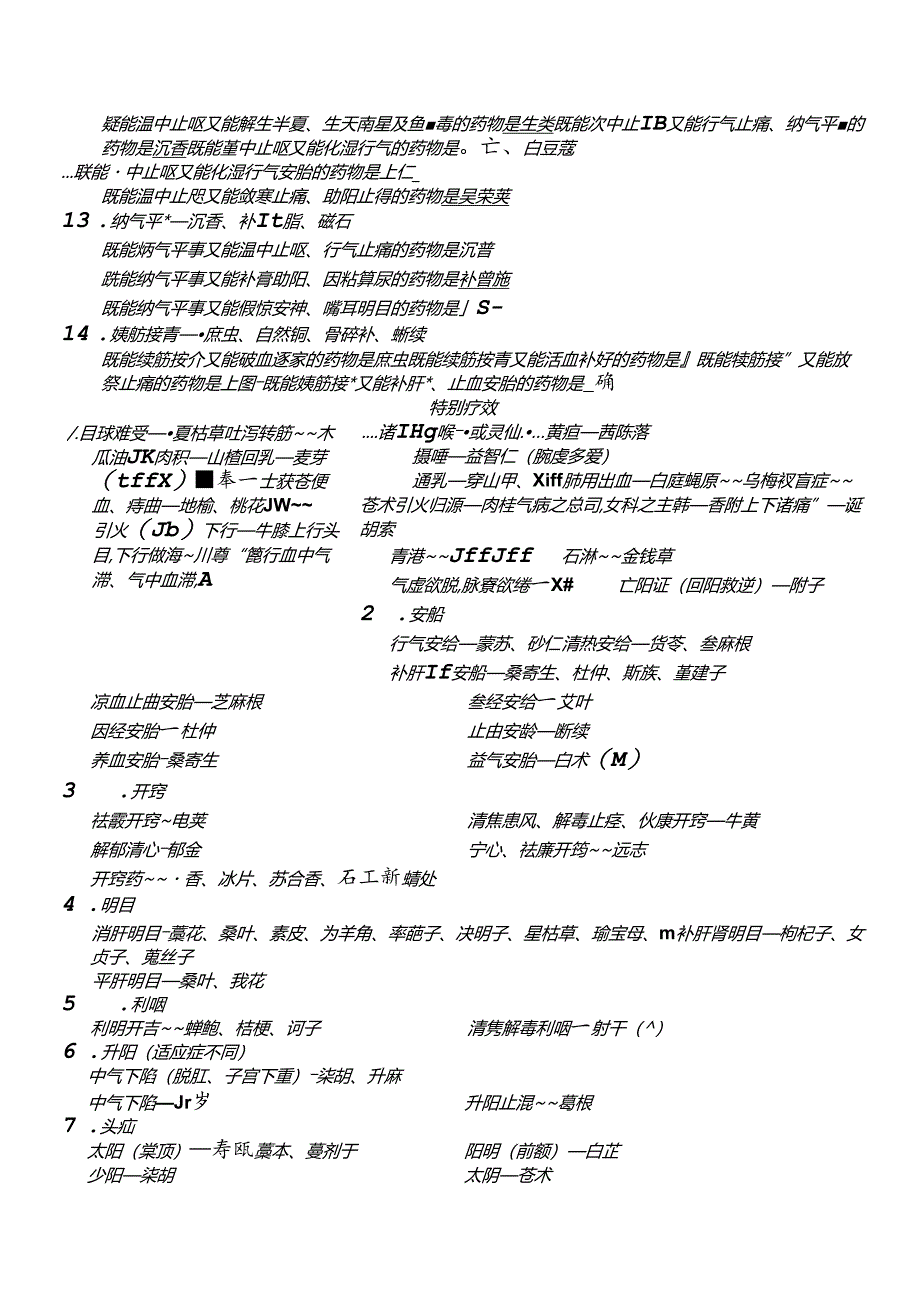 疑能温中止呕又能解生半夏、生天南星及鱼■毒的药物是生类既能次中止IB又能行气止痛、纳气平■的
药物是沉香既能堇中止呕又能化湿行气的药物是。亡、白豆蔻
...联能·中止呕又能化湿行气安胎的药物是上仁_
既能温中止咫又能敛寒止痛、助阳止得的药物是吴荣荚
13 .纳气平*—沉香、补It脂、磁石
既能炳气平事又能温中止呕、行气止痛的药物是沉普
跣能纳气平事又能补膏助阳、因粘算尿的药物是补曾施
既能纳气平事又能假惊安神、嘴耳明目的药物是」S-
14 .姨舫接青—•庶虫、自然铜、骨碎补、蜥续
既能续筋按介又能破血逐家的药物是庶虫既能续筋按青又能活血补好的药物是』既能犊筋接”又能放
祭止痛的药物是上图-既能姨筋接*又能补肝*、止血安胎的药物是_确
特别疗效
/.目球难受—•夏枯草吐泻转筋~~木
瓜油JK肉积—山楂回乳—麦芽
（tffX）■奉一士获苍便
血、痔曲—地榆、桃花JW~~
引火（Jb）下行—牛膝上行头
目,下行做海~川尊“篦行血中气
滞、气中血滞,A
....诸IHg喉-•或灵仙.•...黄疸—茜陈落
摄唾—益智仁（腕虔多爱）
通乳—穿山甲、Xiff肺用出血—白庭蝇原~~乌梅衩盲症~~
苍术引火归源—肉桂气病之总司,女科之主韩—香附上下诸痛”—诞
胡索
青港~~JffJff 石淋~~金钱草
气虚欲脱,脉寮欲绻一X# 亡阳证（回阳救逆）—附子
2 .安船
行气安给—蒙苏、砂仁清热安给—货苓、叁麻根
补肝If安船—桑寄生、杜仲、斯族、堇建子
凉血止曲安胎—芝麻根 叁经安给一艾叶
因经安胎一杜仲 止由安龄—断续
养血安胎-桑寄生 益气安胎—白术（M）
3 .开窍
祛霰开窍~电荚 清焦患风、解毒止痉、伙康开窍—牛黄
解郁清心-郁金 宁心、祛廉开筠~~远志
开窍药~~·香、冰片、苏合香、石工新蜻处
4 .明目
消肝明目-藁花、桑叶、素皮、为羊角、率葩子、决明子、星枯草、瑜宝母、m补肝肾明目—枸杞子、女
贞子、蒐丝子
平肝明目—桑叶、我花
5 .利咽
利明开吉~~蝉鲍、桔梗、诃子 清隽解毒利咽一射干（^）
6 .升阳（适应症不同）
中气下陷（脱肛、子宫下重）-柒胡、升麻
中气下陷—Jr岁 升阳止混~~葛根
7 .头疝
太阳（棠顶）—寿瓯藁本、蔓剂于 阳明（前额）—白芷
少阳—柒胡 太阴—苍术